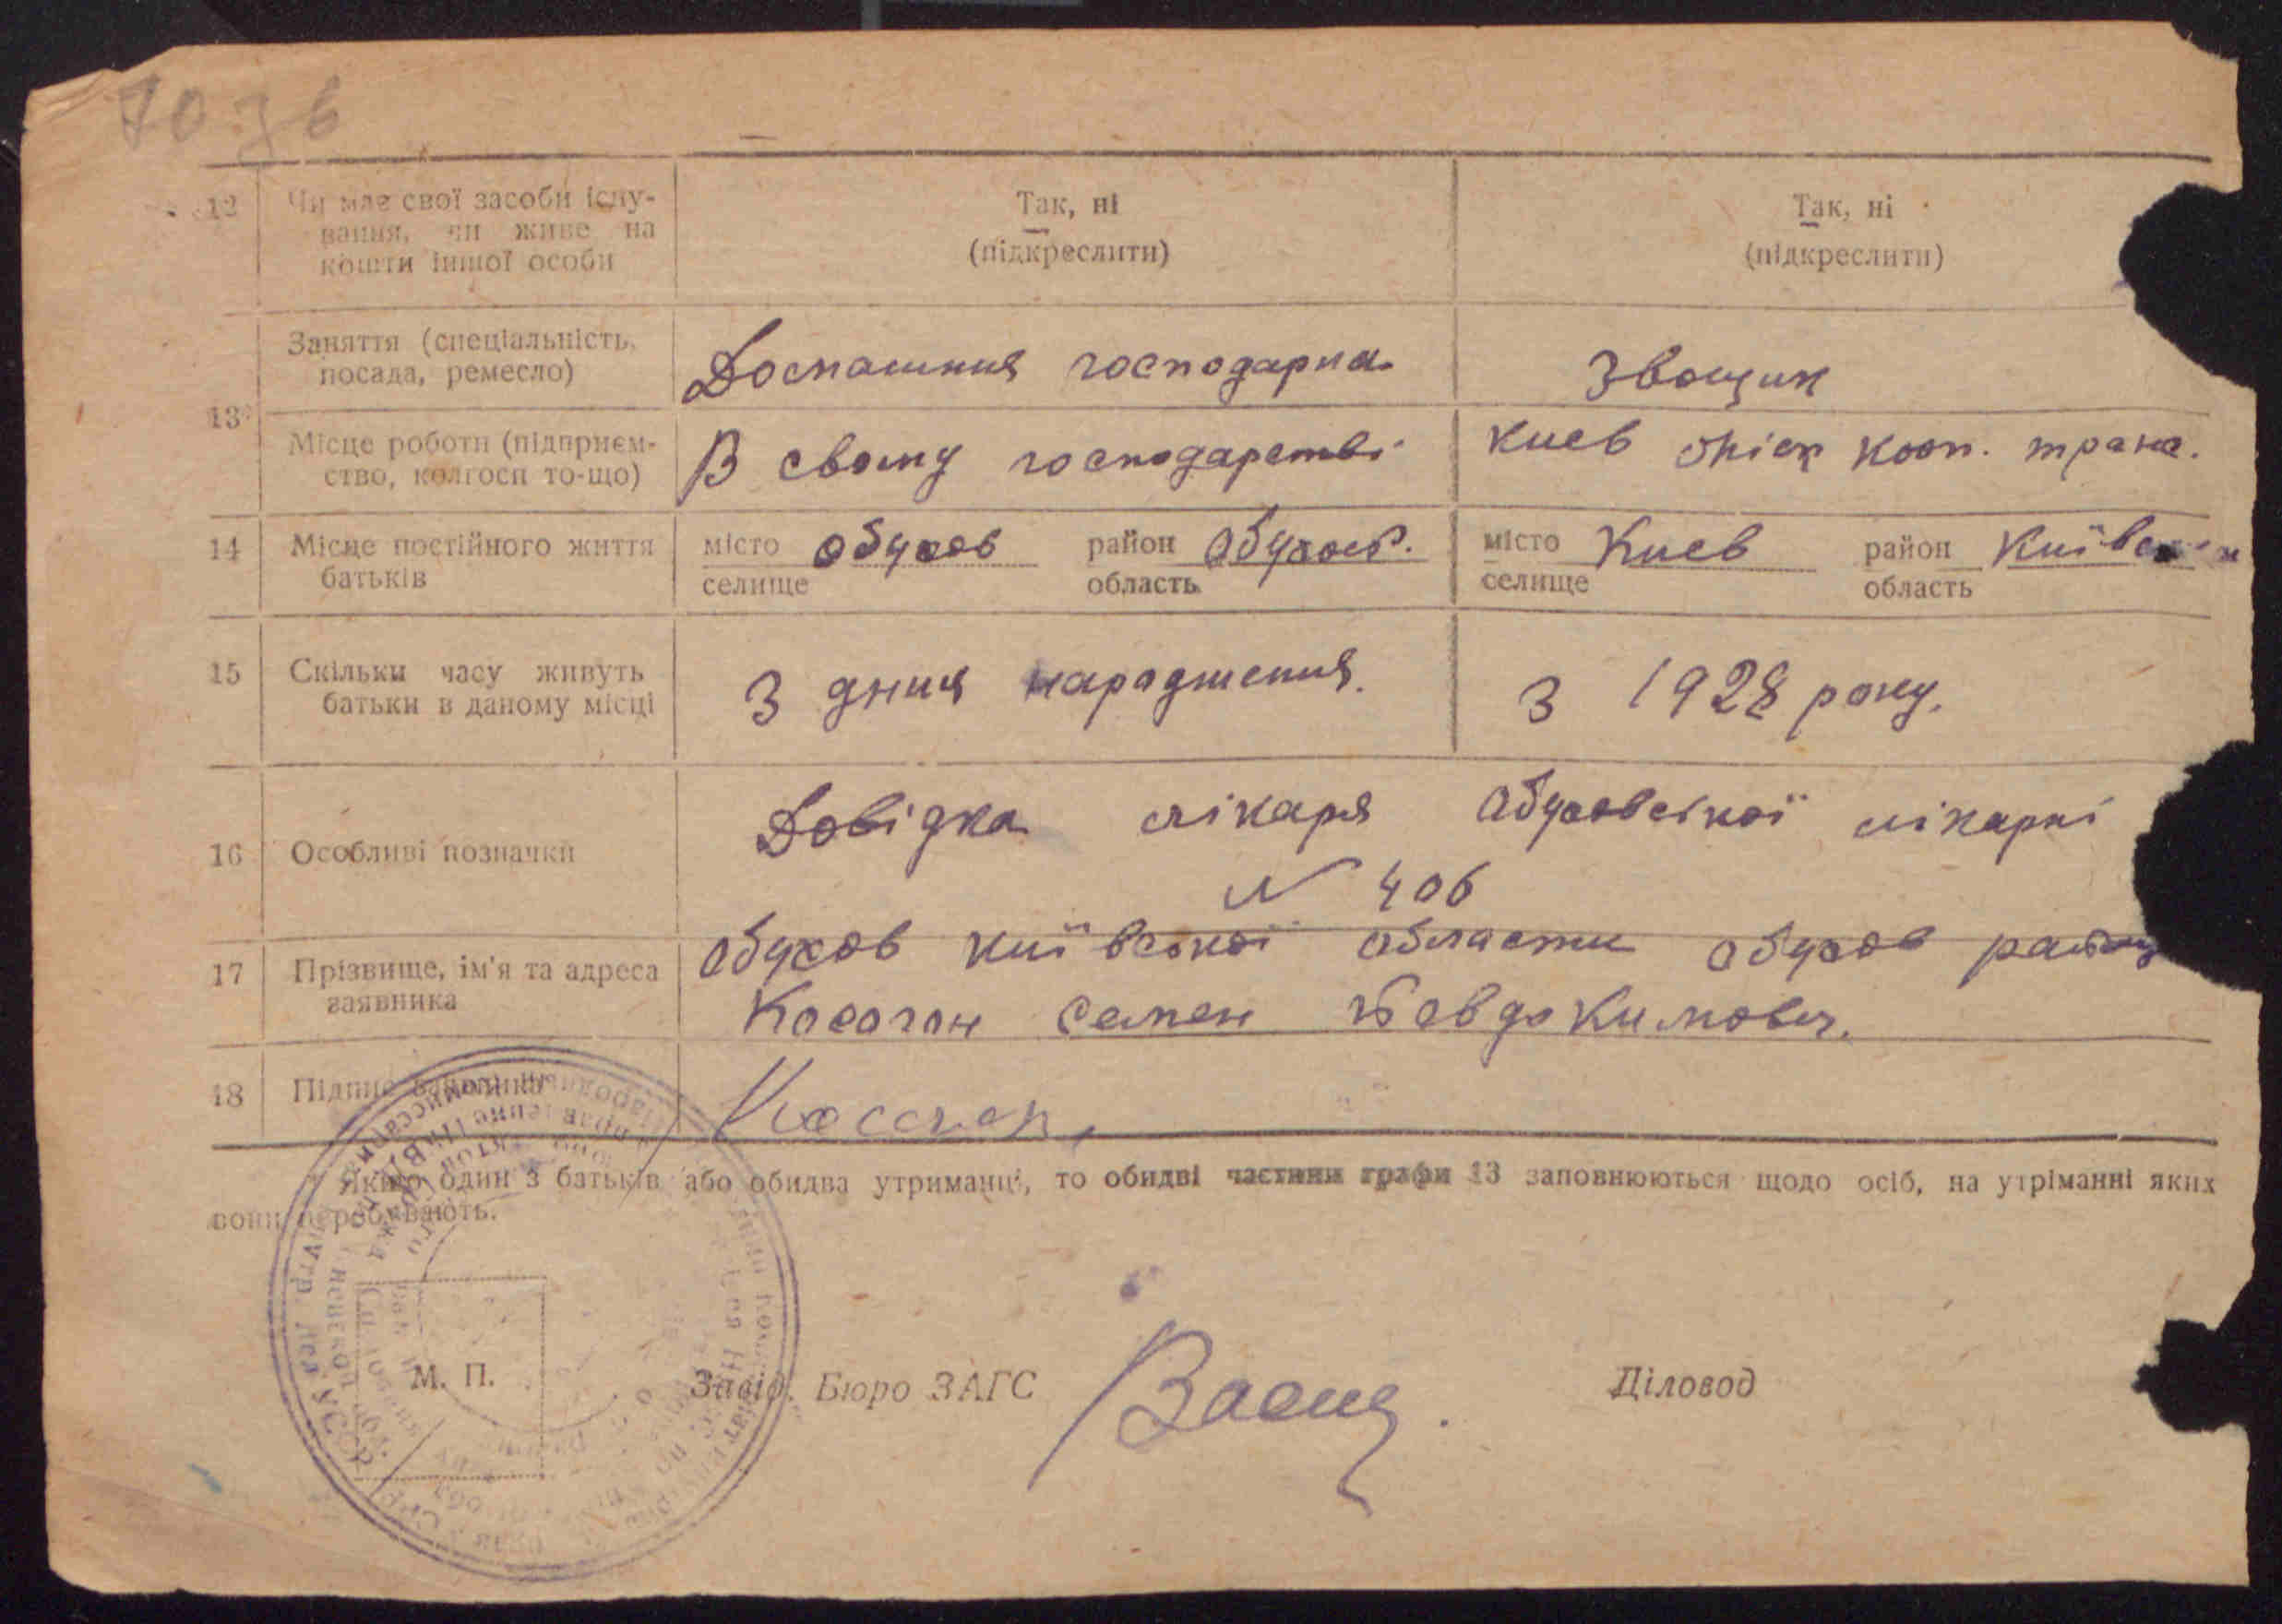 70 зв
12 Чи має свої засоби існу-
вання, чи живе на
кошти іншої особи
Так, ні
(підкреслити)
Так, ні
(підкреслити)
13
Заняття (спеціальність,
посада, ремесло)
Домашния господарка
Звощик
Місце роботи (підприєм-
ство, колгосп то-що)
В свому господарстві
Киев кооп. транс.
14 Місце постійного життя
батьків
місто Обухов район Обухов.
селище область
місто Киев район
селище область
15 Скільки часу живуть
батьки в даному місці
З дния народження.
З 1928 року.
16 Особливі позначки
Довідка лікаря Обуховської лікарні
N 406
17 Прізвище, ім'я та адреса
заявника
Обухов київської области Обухов району
Косогон Семен Овдокимович.
18 Підпис заявника
Якщо один з батьків або обидва утриманці, то обидві частини графи 13 заповнюються щодо осіб, на утріманні яких
вони перебувають.
М. П.
Завід. Бюро ЗАГС
Діловод